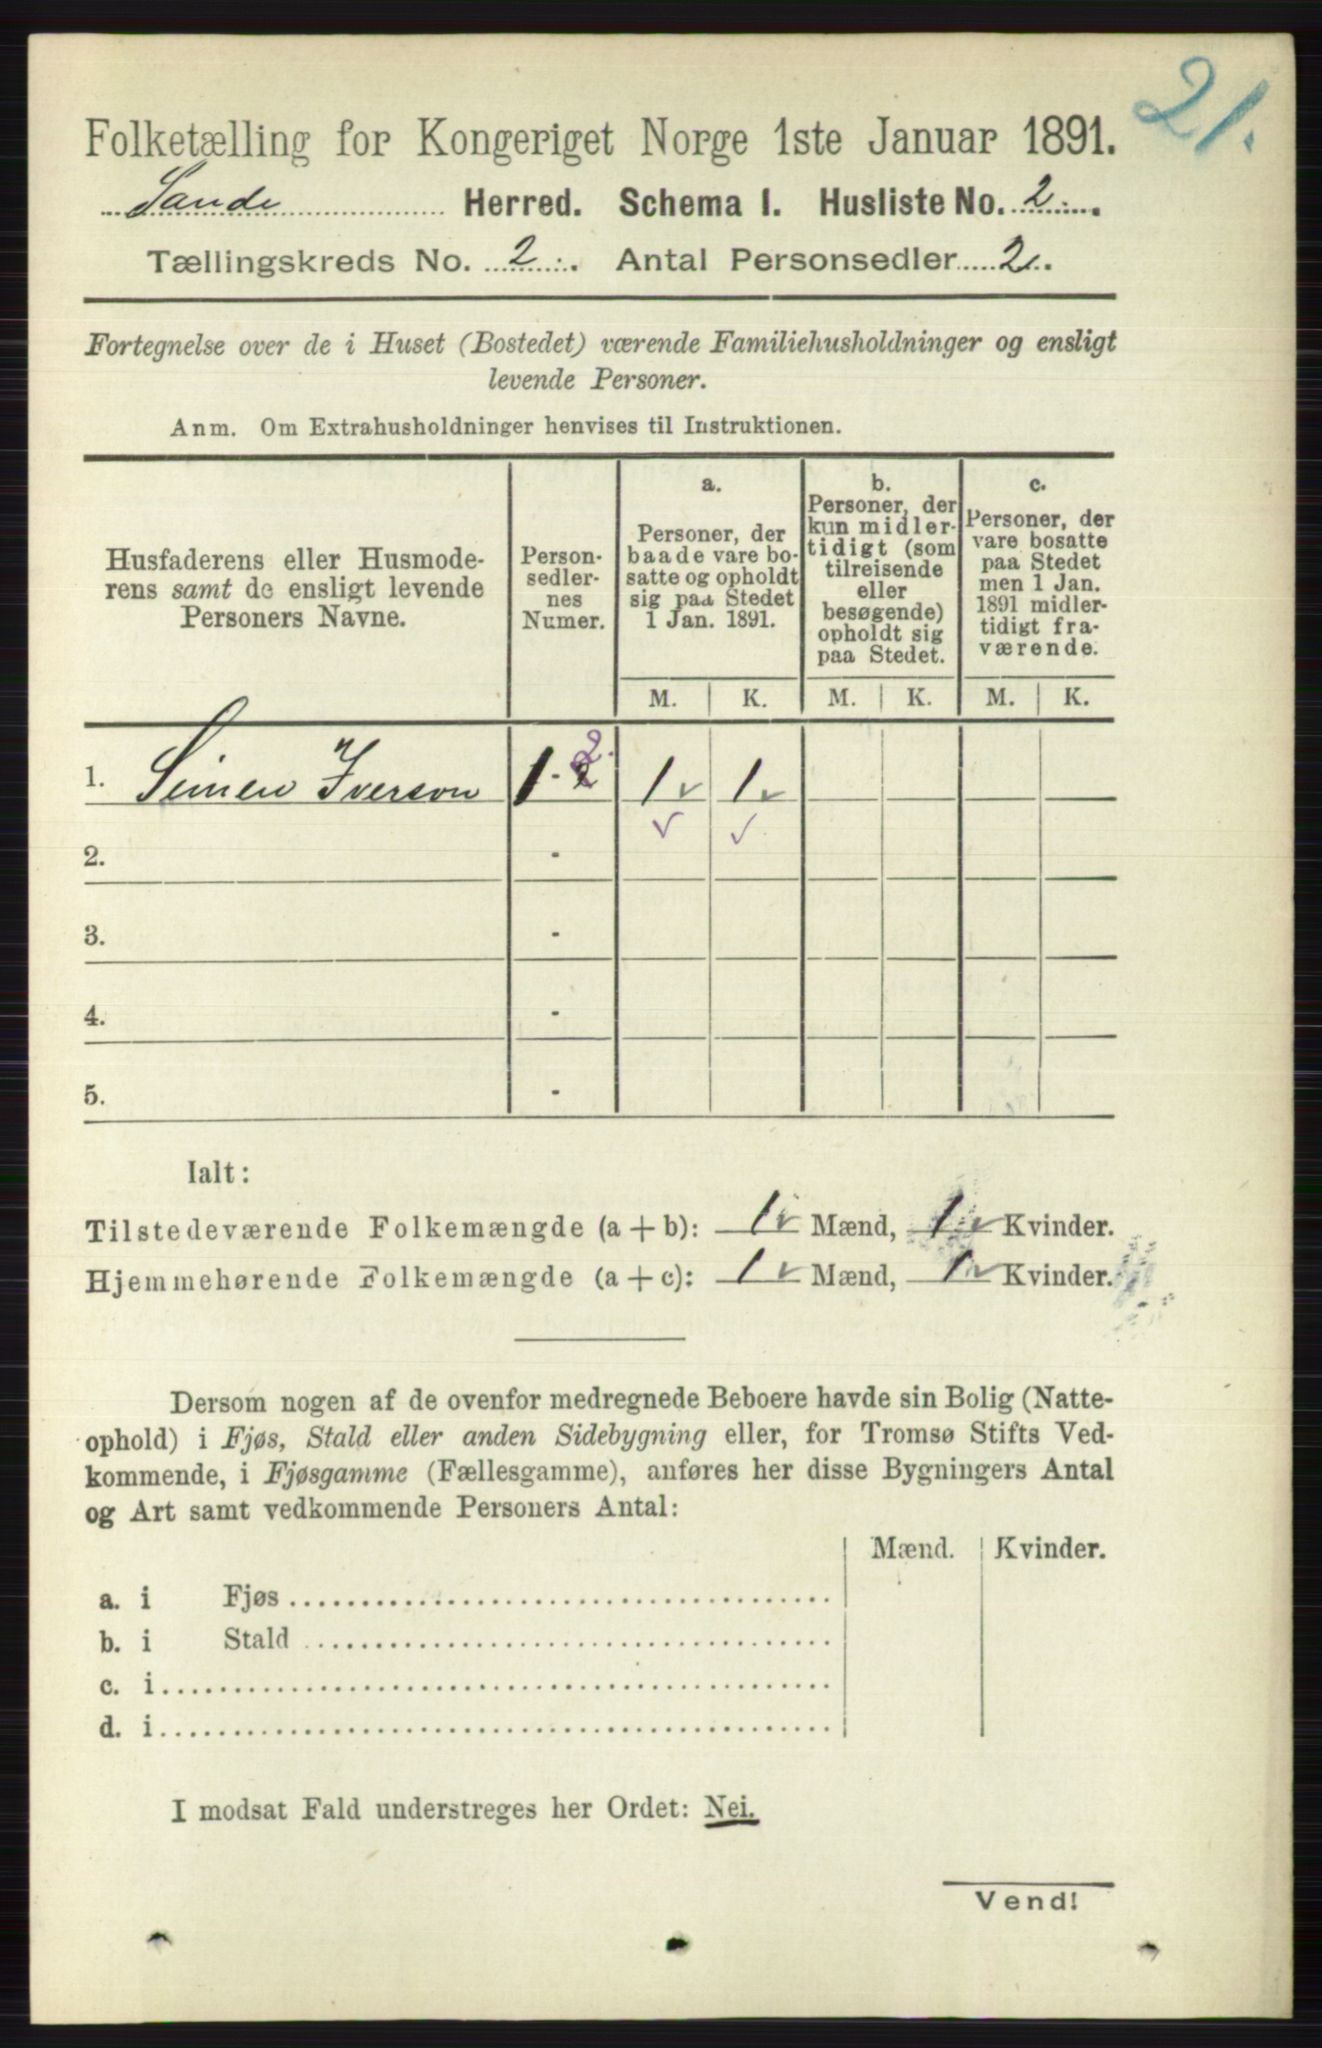 21.
Folketælling for Kongeriget Norge 1ste Januar 1891.
Sande Herred. Schema I. Husliste No. 2.
Tællingskreds No. 2. Antal Personsedler 2.
Fortegnelse over de i Huset (Bostedet) værende Familiehusholdninger og ensligt
levende Personer.
Anm. Om Extrahusholdninger henvises til Instruktionen.
Husfaderens eller Husmode-
rens samt de ensligt levende
Personers Navne.
Person-
sedler-
nes
Numer.
a.
Personer, der
baade vare bo-
satte og opholdt
sig paa Stedet
1 Jan. 1891.
b.
Personer, der
kun midler-
tidigt (som
tilreisende
eller
besøgende)
opholdt sig
paa Stedet.
c.
Personer, der
vare bosatte
paa Stedet
men 1 Jan.
1891 midler-
tidigt fra-
værende.
M. K. M. K. M. K.
1. Simen Iversen 1 - 2 1 1
2. -
3. -
4. -
5. -
Ialt:
Tilstedeværende Folkemængde (a + b): 1 Mænd, 1 Kvinder.
Hjemmehørende Folkemængde (a + c): 1 Mænd, 1 Kvinder.
Dersom nogen af de ovenfor medregnede Beboere havde sin Bolig (Natte-
ophold) i Fjøs, Stald eller anden Sidebygning eller, for Tromsø Stifts Ved-
kommende, i Fjøsgamme (Fællesgamme), anføres her disse Bygningers Antal
og Art samt vedkommende Personers Antal:
Mænd. Kvinder.
a. i Fjøs
b. i Stald
c. i
d. i
I modsat Fald understreges her Ordet: Nei.
Vend!